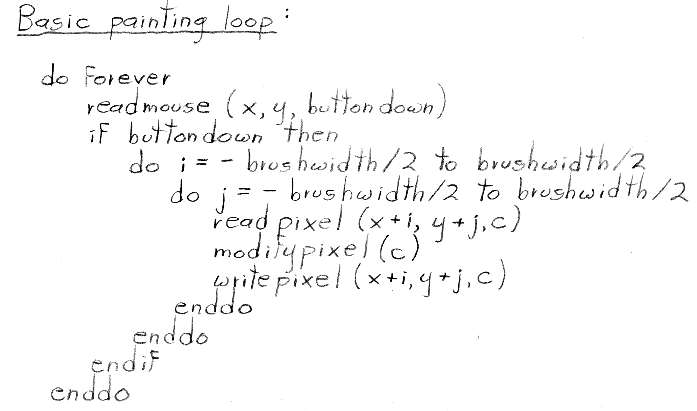 Basic painting loop:
do Forever
readmouse (x, y, buttondown)
if buttondown then
do i = - brushwidth/2 to brushwidth/2
do j = - brushwidth/2 to brushwidth/2
readpixel (x+i, y+j, c)
modifypixel (c)
writepixel (x+i, y+j, c)
enddo
enddo
endif
enddo